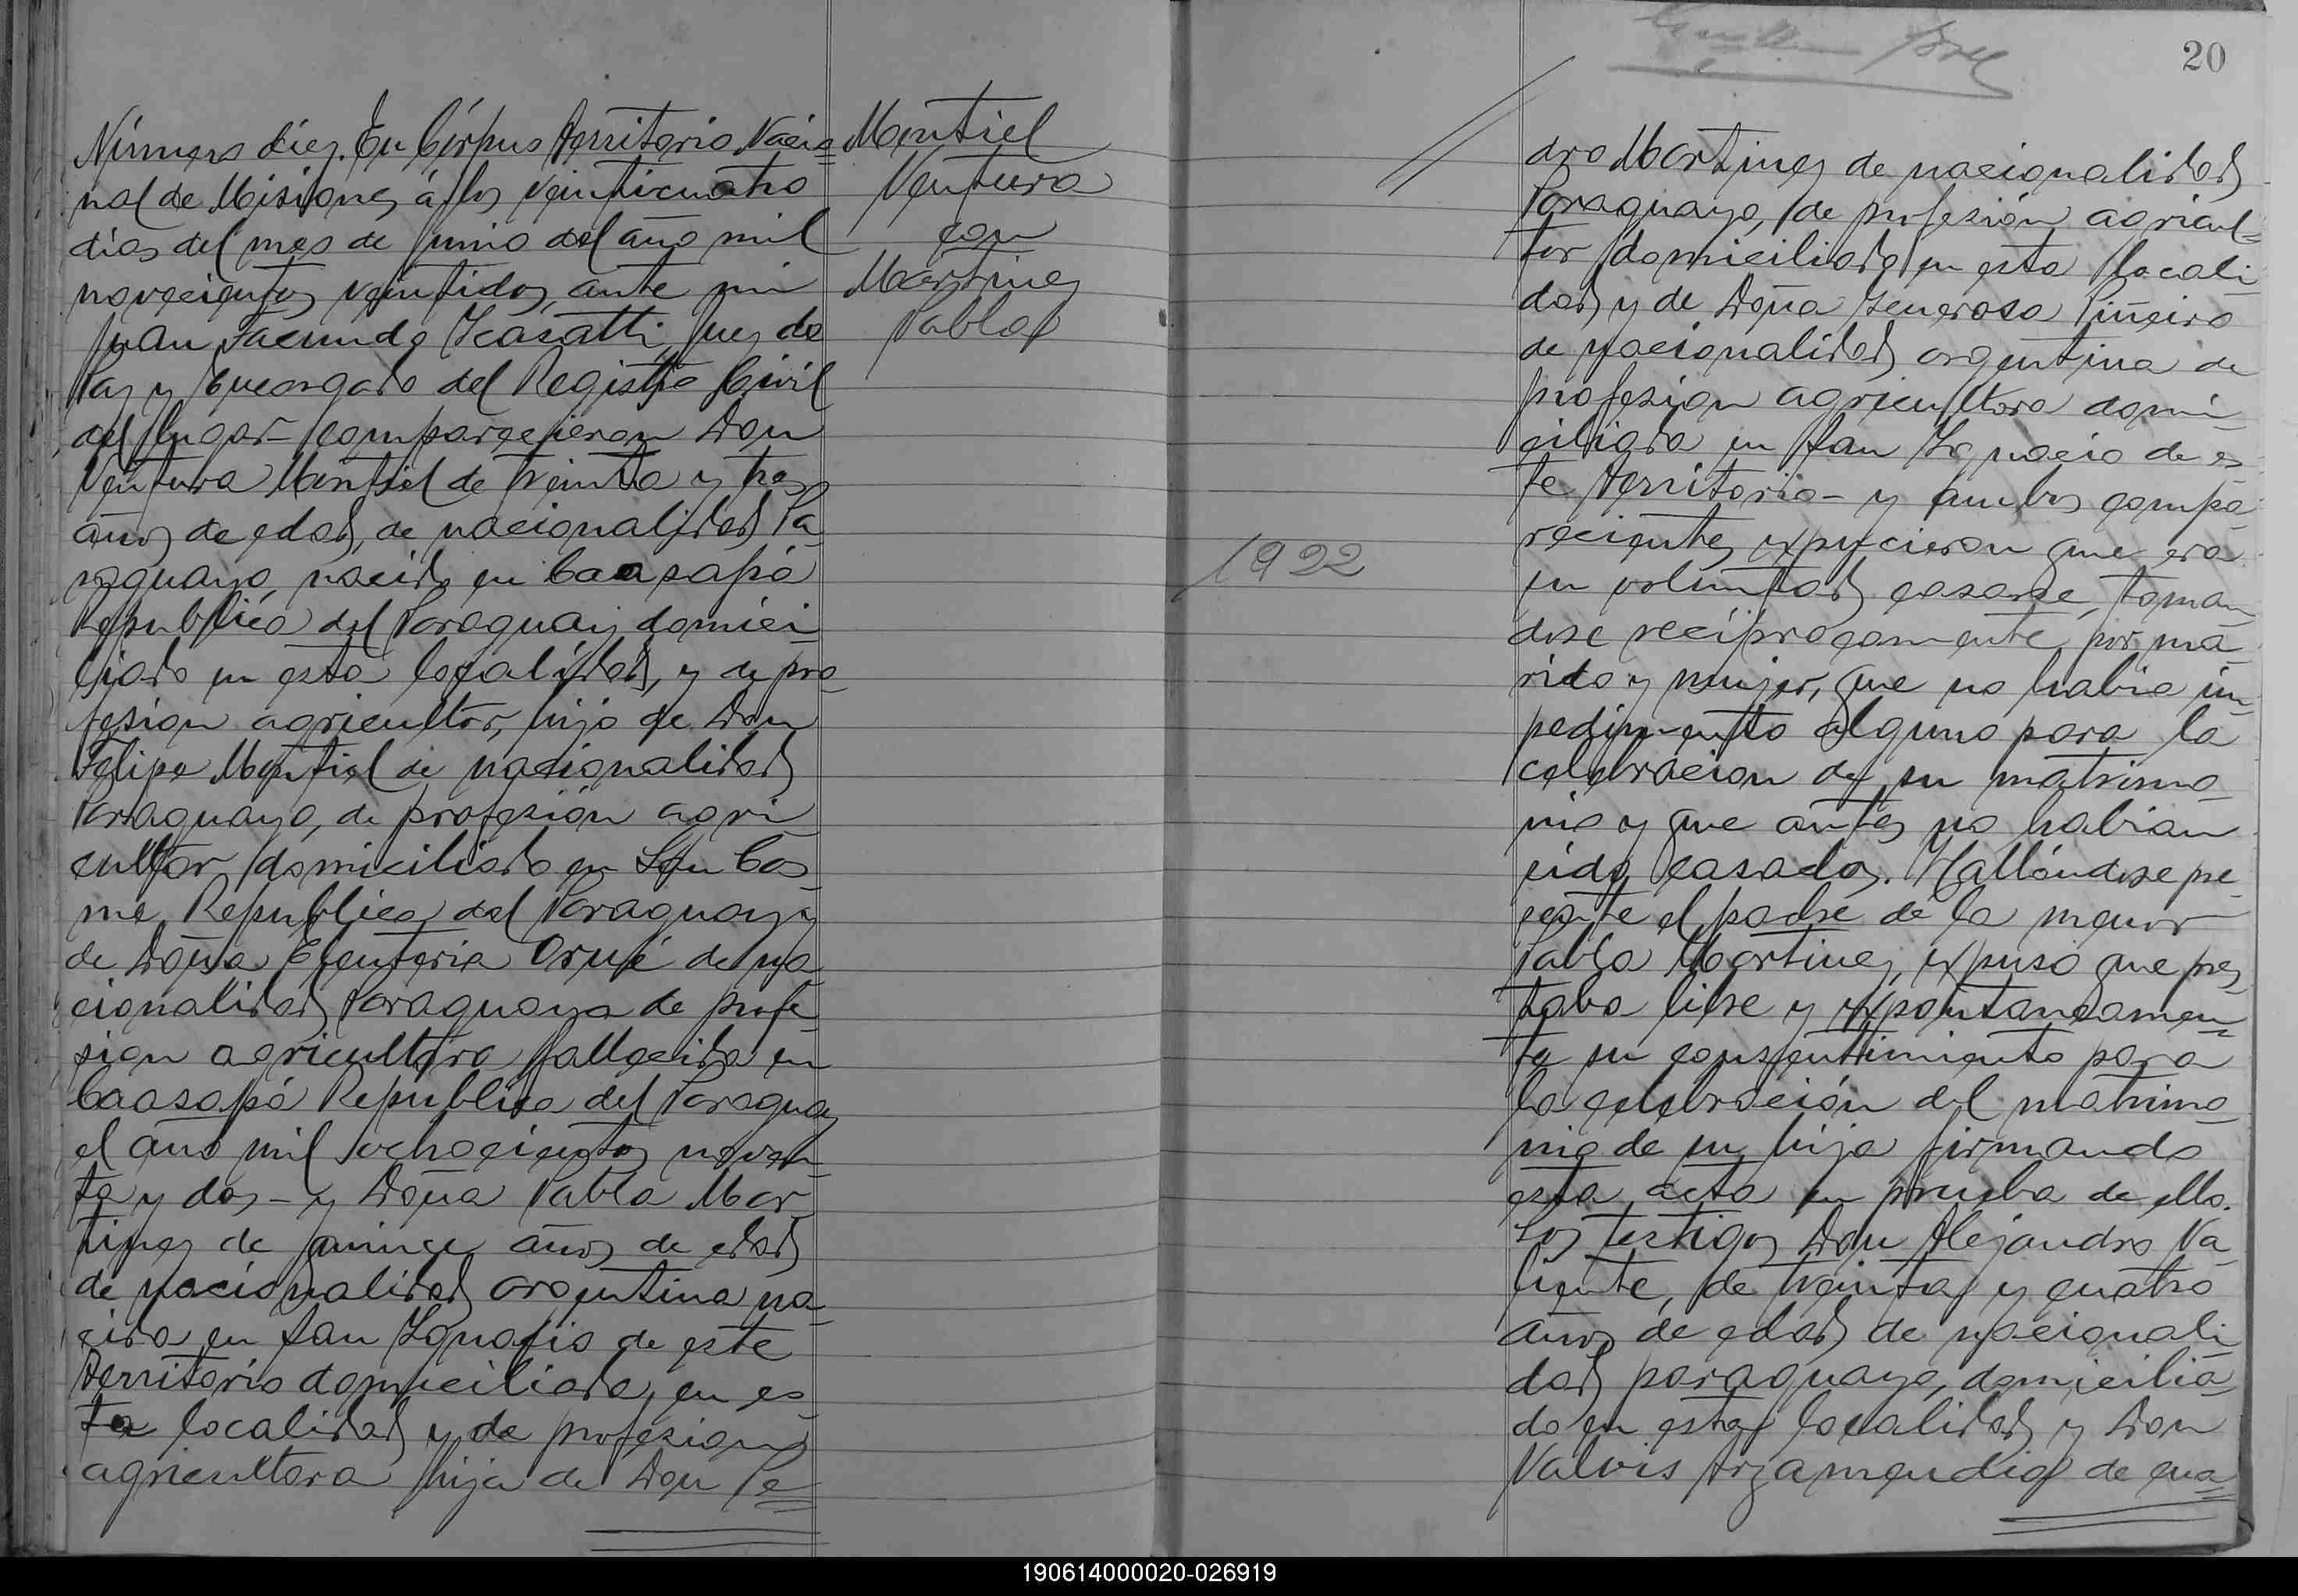 Número diez. En Córpus Territorio Nacio-
nal de Misiones á los veinticuatro
días del mes de junio del año mil
novecientos veintidos, ante mi
Juan Facundo Casatti, Juez de
Paz y Encargado del Registro Civil
del lugar comparecieron Don
Ventura Montiel de treinta y tres
años de edad, de nacionalidad Pa-
raguayo, nacido en Caasapá
Republica del Paraguay domici-
liado en esta localidad, y de pro-
fesion agricultor, hijo de Don
Felipe Montiel de nacionalidad
Paraguayo, de profesión agri-
cultor domiciliado en San Cos-
me Republica del Paraguay y
de Doña Eleuteria Orué de na-
cionalidad Paraguaya de profe-
sion agricultora fallecida en
Caasapá Republica del Paraguay
el año mil ochocientos noven-
ta y dos - y Doña Pabla Mar-
tinez de quince años de edad
de nacionalidad argentina na-
cida en San Ignacio de este
Territorio domiciliada en es-
ta localidad y de profesion
agricultora hija de Don Pe-
Montiel
Ventura
con
Martinez
Pabla
20
dro Martinez de nacionalidad
Paraguayo, de profesión agricul-
tor domiciliado en esta locali-
dad y de Doña Generosa Piñeiro
de nacionalidad argentina de
profesion agricultora domi-
ciliada en San Ignacio de es-
te Territorio - y ambos compa-
recientes expucieron que era
su voluntad casarse, toman-
dose recíprocamente por ma-
rido y mujer, que no habia im-
pedimento alguno para la
celebracion de su matrimo-
nio y que antes no habian
sido casados. Hallándose pre-
sente el padre de la menor
Pabla Martinez, expuso que pres-
taba libre y expontaneamen-
te su consentimiento para
la celebración del matrimo-
nio de su hija firmando
esta acta en prueba de ello.
Los testigos Don Alejandro Va-
liente, de treinta y cuatro
años de edad de nacionali-
dad paraguayo, domicilia-
do en esta localidad y Don
Valois Arzamendia de cua-
1922
190614000020-026919